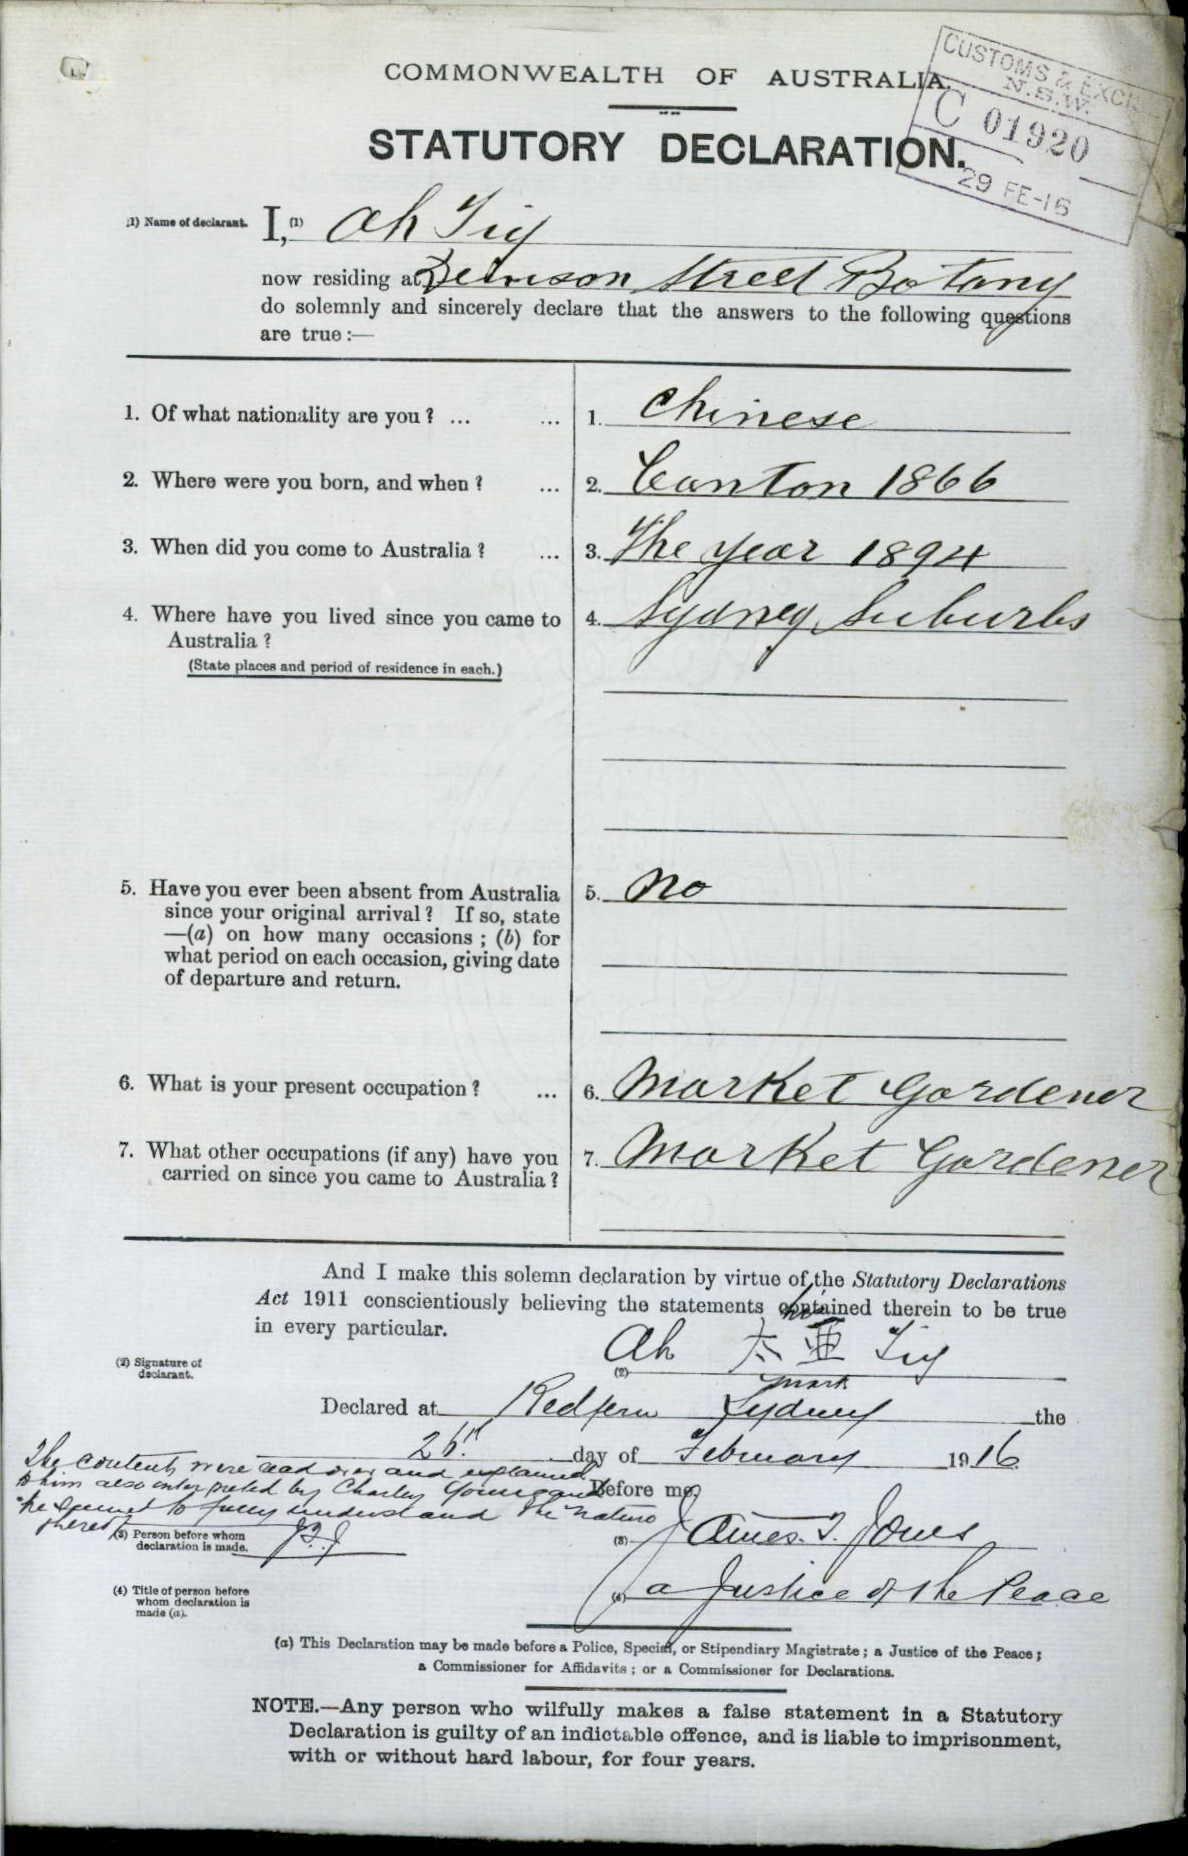 COMMONWEALTH OF AUSTRALIA.
CUSTOMS & EXCIS
N.S.W.
C 01920
29 FE-16
STATUTORY DECLARATION.
(1) Name of declarant. I,(1) Ah
now residing at Denison Street Botany
do solemnly and sincerely declare that the answers to the following questions
are true:—
1. Of what nationality are you? ... ... 1. Chinese
2. Where were you born, and when? ... 2. Canton 1866
3. When did you come to Australia? ... 3. The year 1894
4. Where have you lived since you came to 4. Sydney Suburbs
Australia?
(State places and period of residence in each.)
5. Have you ever been absent from Australia 5. no
since your original arrival? If so, state
—(a) on how many occasions; (b) for
what period on each occasion, giving date
of departure and return.
6. What is your present occupation? ... 6. Market Gardener
7. What other occupations (if any) have you 7. Market Gardener
carried on since you came to Australia?
And I make this solemn declaration by virtue of the Statutory Declarations
Act 1911 conscientiously believing the statements contained therein to be true
in every particular.
his
(2) Signature of
declarant.
(2) Ah 亜
mark
Declared at Redfern Sydney the
day of February 1916
The contents were read over and explained
to him also interpreted by Charley and
he seemed to fully understand the nature
thereof
Before me,
(3) Person before whom
declaration is made.
(3) James T. Jones
(4) Title of person before
whom declaration is
made (a).
(4) a Justice of the Peace
(a) This Declaration may be made before a Police, Special, or Stipendiary Magistrate; a Justice of the Peace;
a Commissioner for Affidavits; or a Commissioner for Declarations.
NOTE.—Any person who wilfully makes a false statement in a Statutory
Declaration is guilty of an indictable offence, and is liable to imprisonment,
with or without hard labour, for four years.